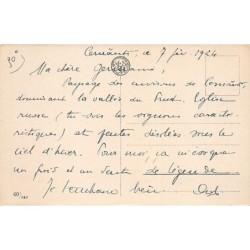 Cernăuți, le 7 fév 1924
Ma chère Germaine,
Paysage des environs de Cernăuți,
dominant la vallée du Prut. Eglise
russe (tu vois les oignons caracté-
ristiques) et pentes désolées sous le
ciel d'hiver. Pour moi, ça n'évoque
froid et un vent de légende
Je t'embrasse